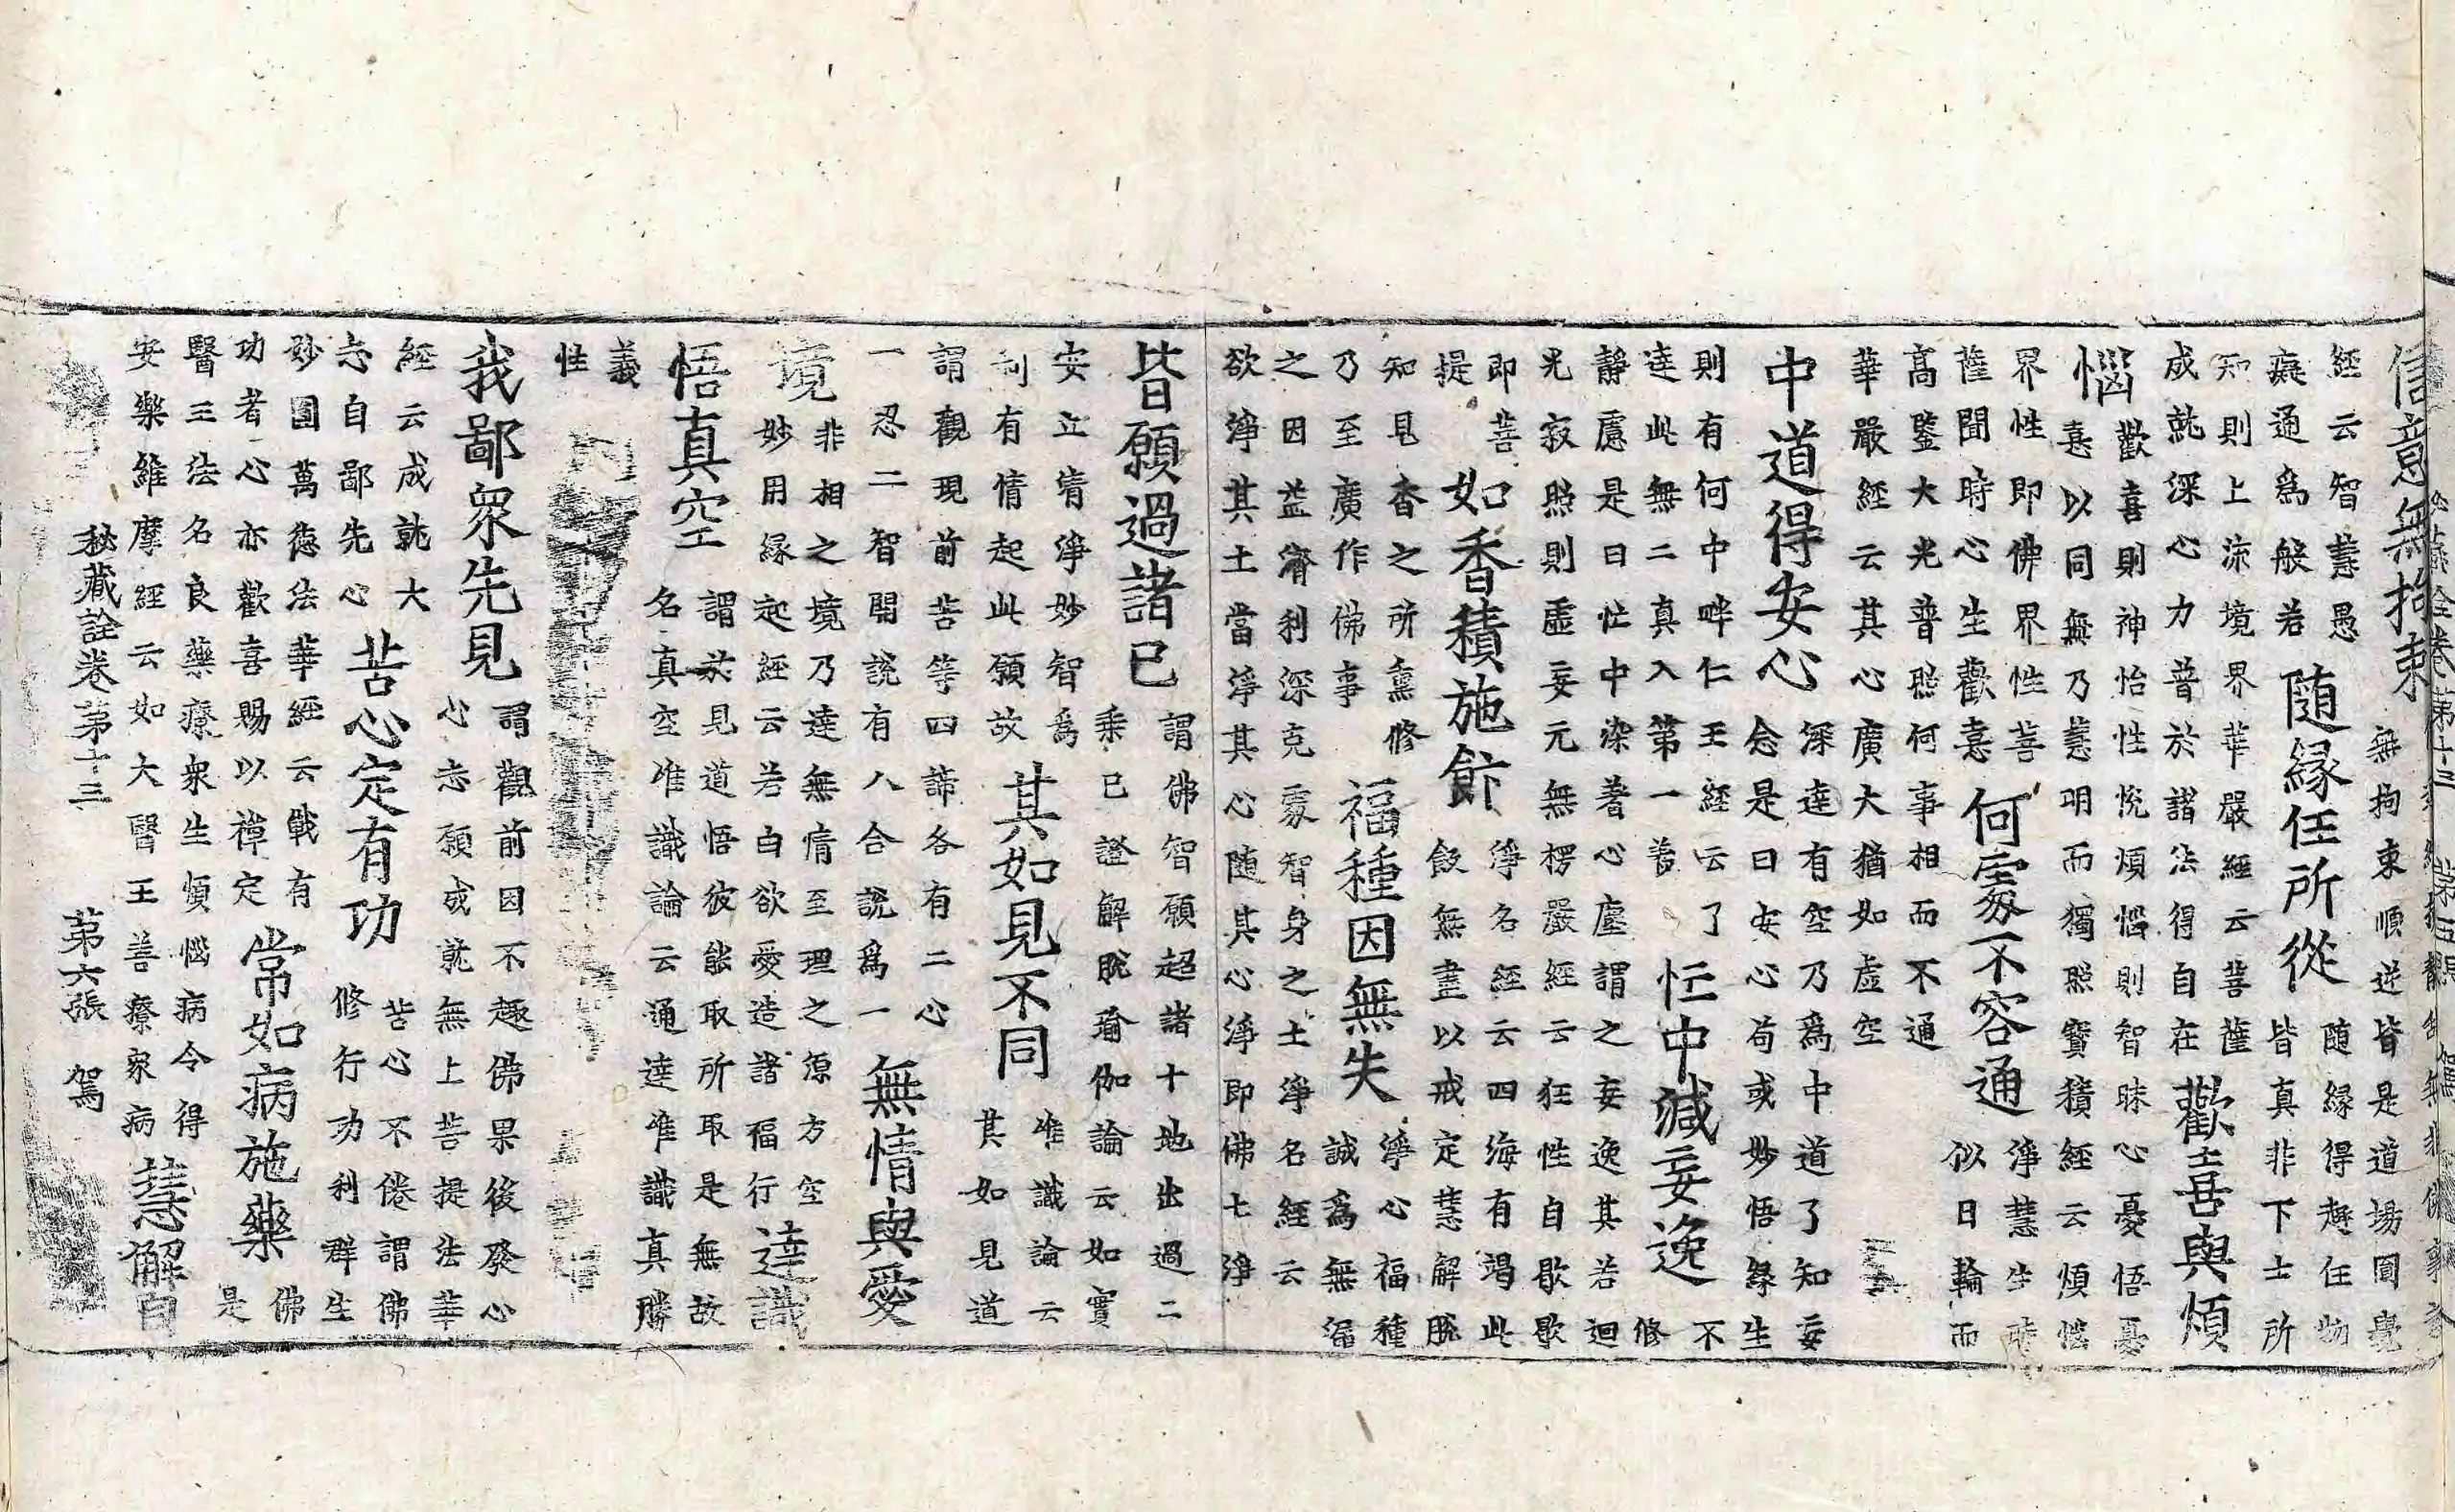 信意無拘束
無拘束順逆皆是道場圓覺
經云智慧愚
癡通為般若
隨緣任所從
隨緣得趣任物
皆真非下士所
知則上流境界華嚴經云菩薩
成就深心力普於諸法得自在
歡喜與煩
惱
歡喜則神怡性悅煩惱則智昧心憂悟憙
憙以同無乃慧明而獨照寶積經云煩惱
界性即佛界界性菩
薩聞時心生歡憙
何䖏不容通
淨慧生時
似日輪而
高鑒大光普照何事相而不通
華嚴經云其心廣大猶如虛空
中道得安心
深達有空乃為中道了知妄
念是曰安心苟或妙悟緣生
則有何中畔仁王經云了
達此無二真入第一義
忹中減妄逸
不
修
靜慮是曰忙中染著心塵謂之妄逸其若迴
光寂照則虛妄元無楞嚴經云狂性自歇歇
即菩
提
如香積施飰
淨名經云四海有竭此
飯無盡以戒定慧解脫
知見香之所熏修
乃至廣作佛事
福種因無失
淨心福種
誠為無漏
之因益濟利深克䖏智身之土淨名經云
欲淨其土當淨其心随其心淨即佛土淨
皆願過諸已
謂佛智願超諸十地出過二
乘已證解脫瑜伽論云如實
安立清淨妙智為
制有情起此願故
其如見不同
唯識論云
其如見道
謂觀現前苦等四諦各有二心
一忍二智開說有八合說為一
無情與愛
境
非相之境乃達無情至理之源方空
妙用緣起經云若白欲愛造諸福行
達識
悟真空
謂於見道悟彼能取所取是無故
名真空唯識論云通達唯識真勝
義
性
我鄙眾先見
謂觀前因不趣佛果後發心
心忘願成就無上菩提法華
經云成就大
志自鄙先心
苦心定有功
苦心不倦謂佛
修行功利群生
妙圓萬德法華經云戰有
功者心亦歡喜賜以禪定
常如病施藥
佛
是
醫王法名良藥療眾生煩惱病令得
安樂維摩經云如大醫王善療眾病
慧解白
秘藏詮卷第十三　第六張　駕